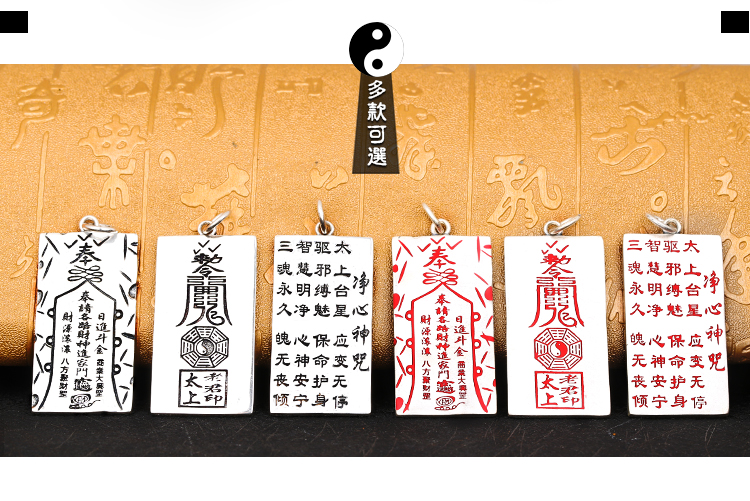 多款可選
奉
日進斗金
奉請各路財神進家門
財源滾滾
敕令
太上
老君印
太上台星 应变无停
驱邪缚魅 保命护身
智慧明净 心神安宁
三魂永久 魄无丧倾
奉
日進斗金
奉請各路財神進家門
財源滾滾
敕令
太上
老君印
净心神咒
太上台星 应变无停
驱邪缚魅 保命护身
智慧明净 心神安宁
三魂永久 魄无丧倾